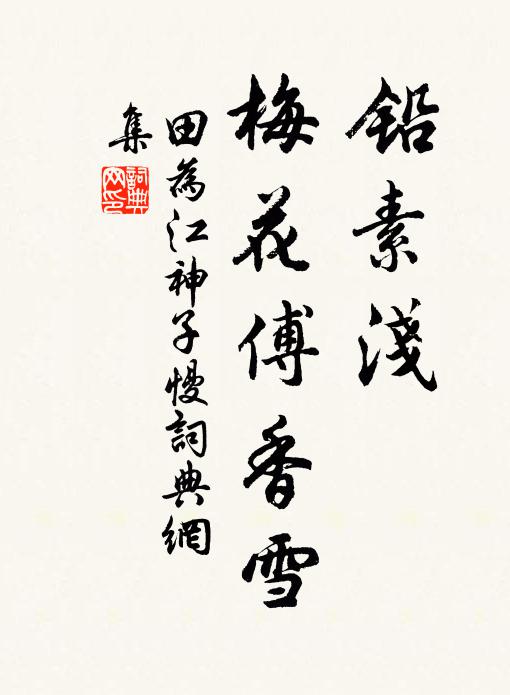 鉛素淺
梅花傅香雪
田為江神子慢詞典網
集
詞典網印